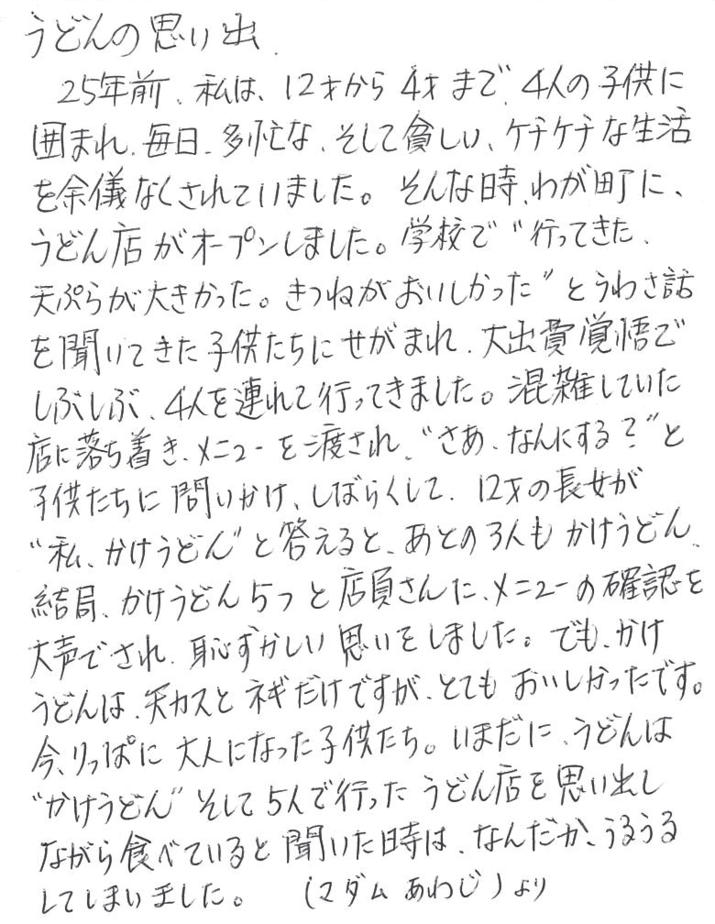 うどんの思い出.
25年前、私は、12才から4才まで、4人の子供に
囲まれ、毎日、多忙な、そして貧しい、ケチケチな生活
を余儀なくされていました。そんな時、わが町に、
うどん店がオープンしました。学校で“行ってきた、
天ぷらが大きかった。きつねがおいしかった”とうわさ話
を聞いてきた子供たちにせがまれ、大出費覚悟で
しぶしぶ、4人を連れて行ってきました。混雑していた
店に落ち着き、メニューを渡され、“さあ、なんにする?”と
子供たちに問いかけ、しばらくして、12才の長女が
“私、かけうどん”と答えると、あとの3人もかけうどん、
結局、かけうどん5つと店員さんに、メニューの確認を
大声でされ、恥ずかしい思いをしました。でも、かけ
うどんは、天カスとネギだけですが、とてもおいしかったです。
今、りっぱに大人になった子供たち。いまだに、うどんは
“かけうどん”そして5人で行ったうどん店を思い出し
ながら食べていると聞いた時は、なんだか、うるうる
してしまいました。 (マダムあわじ)より